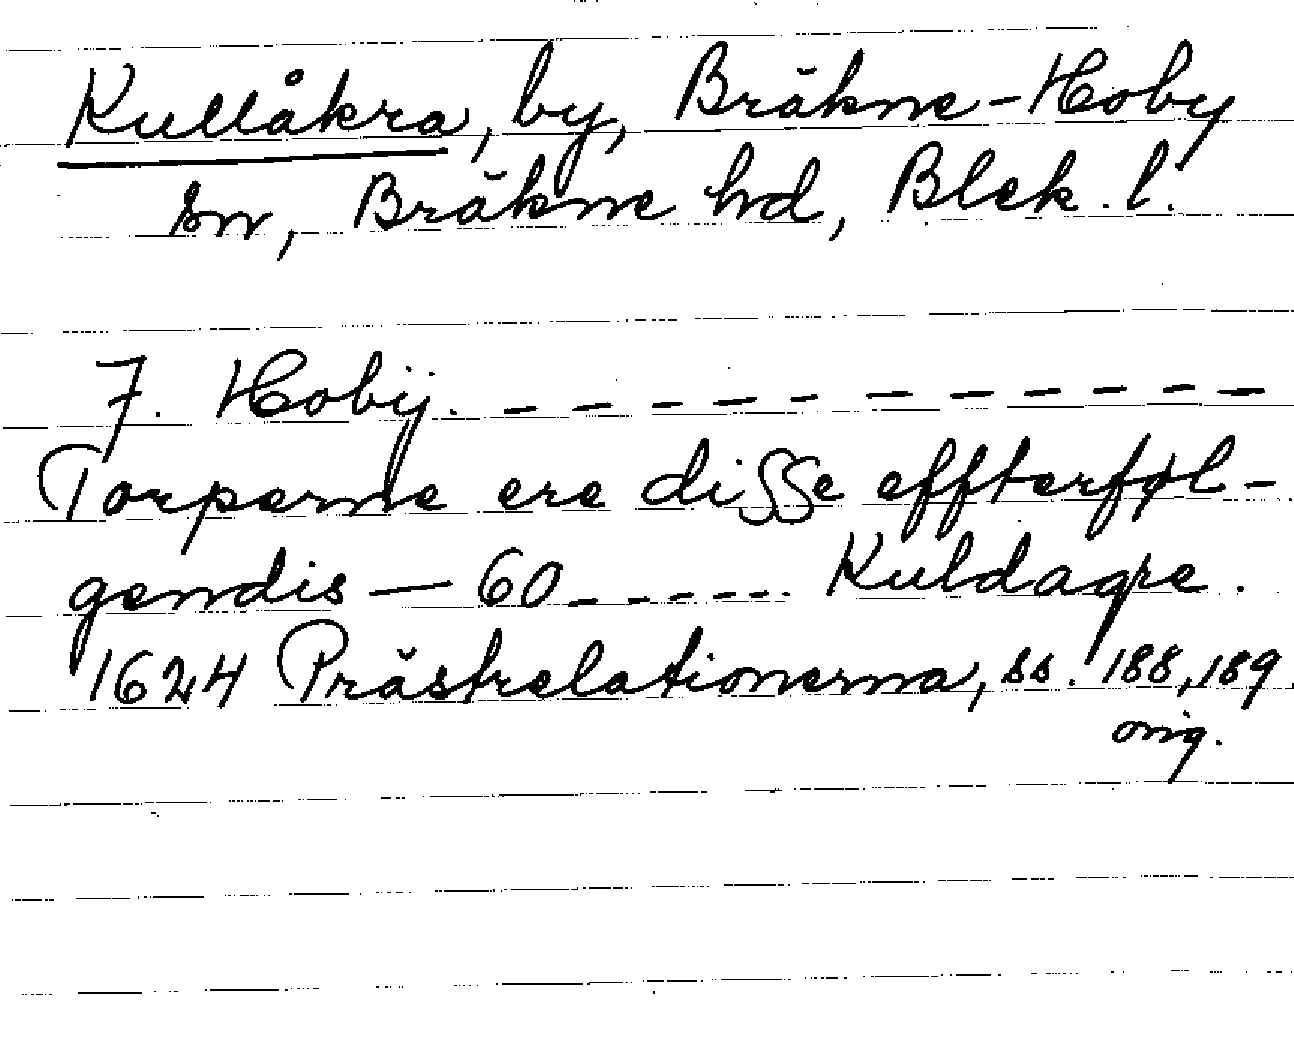 Kullåkra, by, Bräkne-Hoby
sn, Bräkne hd, Blek. l.
7. Hobÿ. – – – – – – – – – –
Torperne ere disse effterføl-
gendis — 60 – – – – – . Kuldagre.
1624 Prästrelationerna, ss. 188, 189
orig.